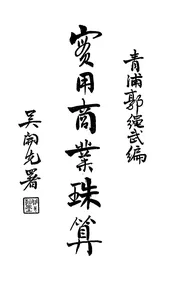 青浦郭繩武編
實用商業珠算
吳開先署